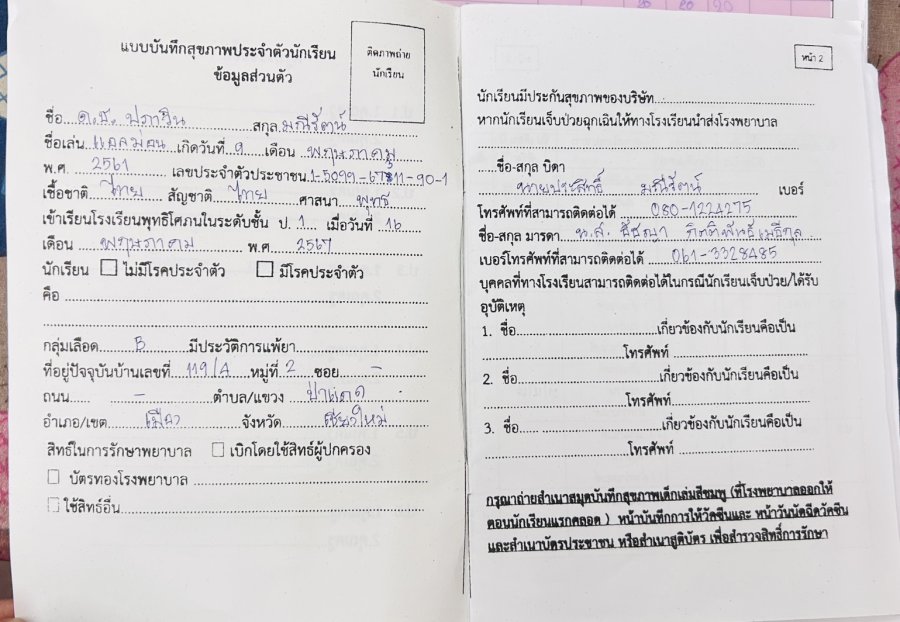 แบบบันทึกสุขภาพประจำตัวนักเรียน
ข้อมูลส่วนตัว
ติดภาพถ่าย
นักเรียน
ชื่อ ด.ช. ปภาวิน สกุล มณีรัตน์
ชื่อเล่น เกิดวันที่ 9 เดือน พฤษภาคม
พ.ศ. 2561 เลขประจำตัวประชาชน
เชื้อชาติ ไทย สัญชาติ ไทย ศาสนา พุทธ
เข้าเรียนโรงเรียนพุทธิโศภนในระดับชั้น ป.1 เมื่อวันที่ 16
เดือน พฤษภาคม พ.ศ. 2567
นักเรียน ☐ ไม่มีโรคประจำตัว ☐ มีโรคประจำตัว
คือ
กลุ่มเลือด B มีประวัติการแพ้ยา
ที่อยู่ปัจจุบันบ้านเลขที่ 119/A หมู่ที่ 2 ซอย -
ถนน - ตำบล/แขวง ป่าแดด
อำเภอ/เขต เมือง จังหวัด เชียงใหม่
สิทธิในการรักษาพยาบาล ☐ เบิกโดยใช้สิทธิผู้ปกครอง
☐ บัตรทองโรงพยาบาล
☐ ใช้สิทธิ์อื่น
หน้า 2
นักเรียนมีประกันสุขภาพของบริษัท
หากนักเรียนเจ็บป่วยฉุกเฉินให้ทางโรงเรียนนำส่งโรงพยาบาล
ชื่อ-สกุล บิดา
นายประสิทธิ์ มณีรัตน์ เบอร์
โทรศัพท์ที่สามารถติดต่อได้ 080-1224275
ชื่อ-สกุล มารดา น.ส. ธัชญา กิตติพันธ์เมธีกุล
เบอร์โทรศัพท์ที่สามารถติดต่อได้ 061-3328485
บุคคลที่ทางโรงเรียนสามารถติดต่อได้ในกรณีนักเรียนเจ็บป่วย/ได้รับ
อุบัติเหตุ
1. ชื่อ เกี่ยวข้องกับนักเรียนคือเป็น
โทรศัพท์
2. ชื่อ เกี่ยวข้องกับนักเรียนคือเป็น
โทรศัพท์
3. ชื่อ เกี่ยวข้องกับนักเรียนคือเป็น
โทรศัพท์
กรุณาถ่ายสำเนาสมุดบันทึกสุขภาพเด็กเล่มสีชมพู (ที่โรงพยาบาลออกให้
ตอนนักเรียนแรกคลอด ) หน้าบันทึกการให้วัคซีนและ หน้าวันนัดฉีดวัคซีน
และสำเนาบัตรประชาชน หรือสำเนาสูติบัตร เพื่อสำรวจสิทธิ์การรักษา